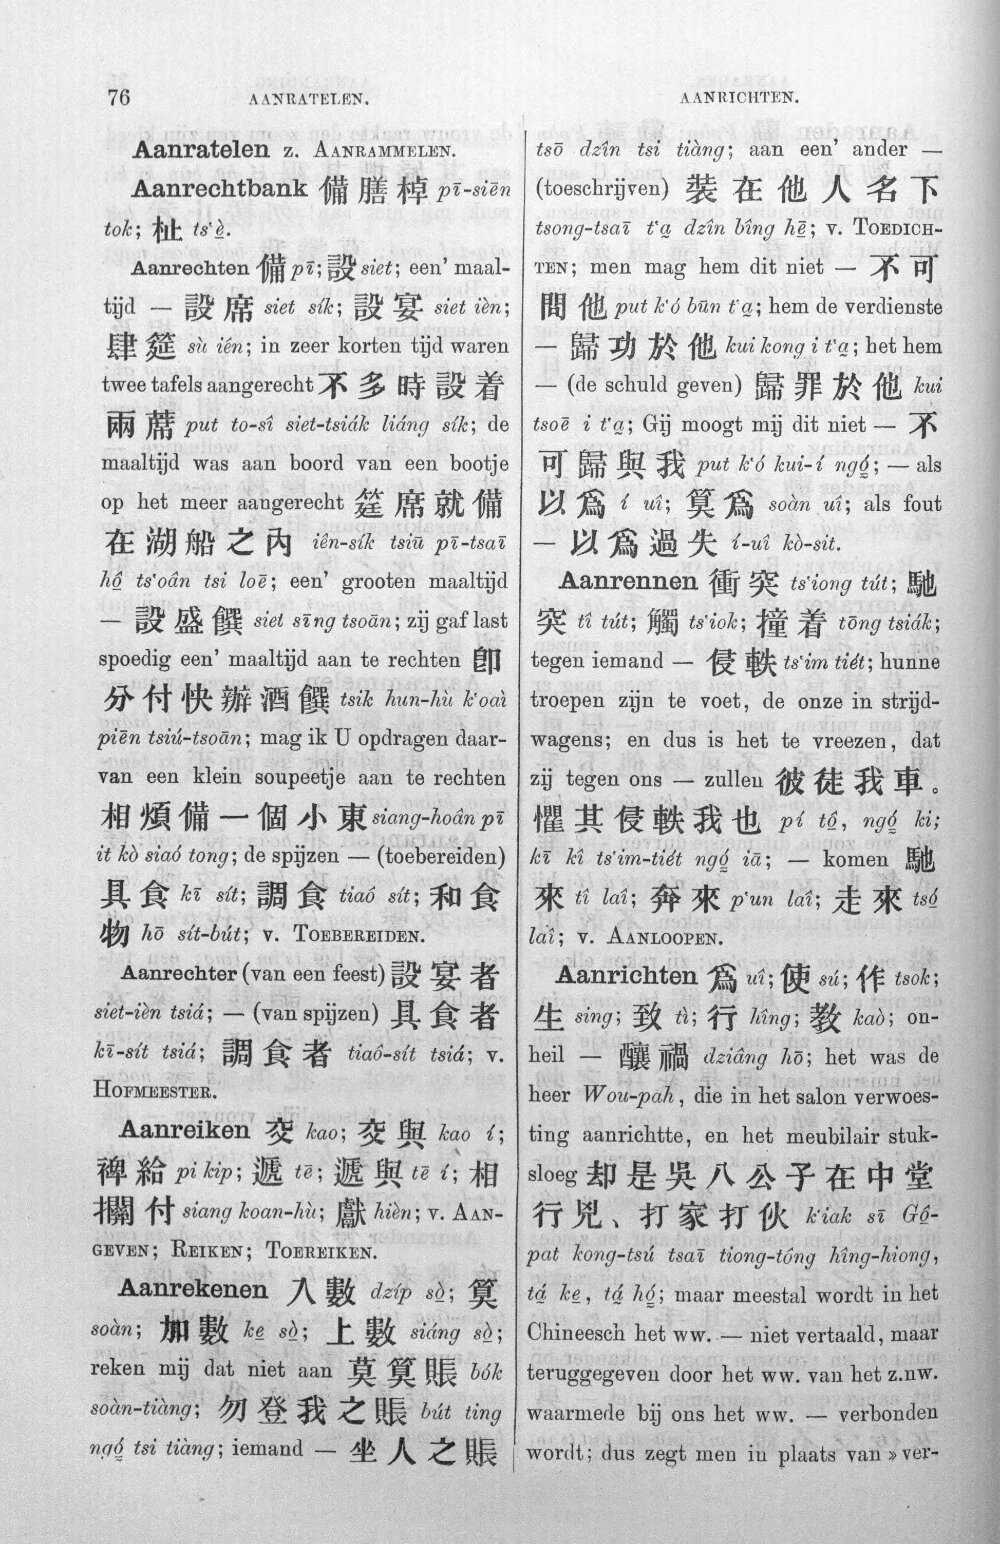 76
AANRATELEN.
AANRICHTEN.
Aanratelen z. AANRAMMELEN.
Aanrechtbank 備膳棹 pī-siēn
tok; 杫 ts‘è̱.
Aanrechten 備 pī; 設 siet; een’ maal-
tijd — 設席 siet sík; 設宴 siet ièn;
肆筵 sù iên; in zeer korten tijd waren
twee tafels aangerecht 不多時設着
兩蓆 put to-sî siet-tsiák liáng sík; de
maaltijd was aan boord van een bootje
op het meer aangerecht 筵席就備
在湖船之內 iên-sík tsiū pī-tsaī
hô͘ ts‘oân tsi loē; een’ grooten maaltijd
— 設盛饌 siet sīng tsoān; zij gaf last
spoedig een’ maaltijd aan te rechten 卽
分付快辦酒饌 tsik hun-hù k‘oaì
piēn tsiú-tsoān; mag ik U opdragen daar-
van een klein soupeetje aan te rechten
相煩備一個小東 siang-hoân pī
it kò siaó tong; de spijzen — (toebereiden)
具食 kī sít; 調食 tiaó sít; 和食
物 hō sít-bút; v. TOEBEREIDEN.
Aanrechter (van een feest) 設宴者
siet-ièn tsiá; — (van spijzen) 具食者
kī-sít tsiá; 調食者 tiaô-sít tsiá; v.
HOFMEESTER.
Aanreiken 交 kao; 交與 kao í;
裨給 pi kip; 遞 tē; 遞與 tē í; 相
攔付 siang koan-hù; 獻 hièn; v. AAN-
GEVEN; REIKEN; TOEREIKEN.
Aanrekenen 入數 dzíp sò͘; 算
soàn; 加數 ke̱ sò͘; 上數 siáng sò͘;
reken mij dat niet aan 莫算賬 bók
soàn-tiàng; 勿登我之賬 bút ting
ngó͘ tsi tiàng; iemand — 坐人之賬
tsō dzîn tsi tiàng; aan een’ ander —
(toeschrijven) 裝在他人名下
tsong-tsaī t‘a̱ dzîn bîng hē̱; v. TOEDICH-
TEN; men mag hem dit niet — 不可
問他 put k‘ó būn t‘a̱; hem de verdienste
— 歸功於他 kui kong i t‘a̱; het hem
— (de schuld geven) 歸罪於他 kui
tsoē i t‘a̱; Gij moogt mij dit niet — 不
可歸與我 put k‘ó kui-í ngó͘; — als
以爲 í uî; 算爲 soàn uî; als fout
— 以爲過失 í-uî kò-sit.
Aanrennen 衝突 ts‘iong tút; 馳
突 tî tút; 觸 ts‘iok; 撞着 tōng tsiák;
tegen iemand — 侵軼 ts‘im tiét; hunne
troepen zijn te voet, de onze in strijd-
wagens; en dus is het te vreezen, dat
zij tegen ons — zullen 彼徒我車。
懼其侵軼我也 pí tô͘, ngó͘ ki;
kī kî ts‘im-tiét ngó͘ iā; — komen 馳
來 tî laî; 奔來 p‘un laî; 走來 tsó͘
laî; v. AANLOOPEN.
Aanrichten 爲 uî; 使 sú; 作 tsok;
生 sing; 致 tì; 行 hîng; 教 kaò; on-
heil — 釀禍 dziâng hō; het was de
heer Wou-pah, die in het salon verwoes-
ting aanrichtte, en het meubilair stuk-
sloeg 却是吳八公子在中堂
行兇、打家打伙 k‘iak sī Gô͘-
pat kong-tsú tsaī tiong-tông hîng-hiong,
tá̱ ke̱, tá̱ hó͘; maar meestal wordt in het
Chineesch het ww. — niet vertaald, maar
teruggegeven door het ww. van het z.nw.
waarmede bij ons het ww. — verbonden
wordt; dus zegt men in plaats van »ver-